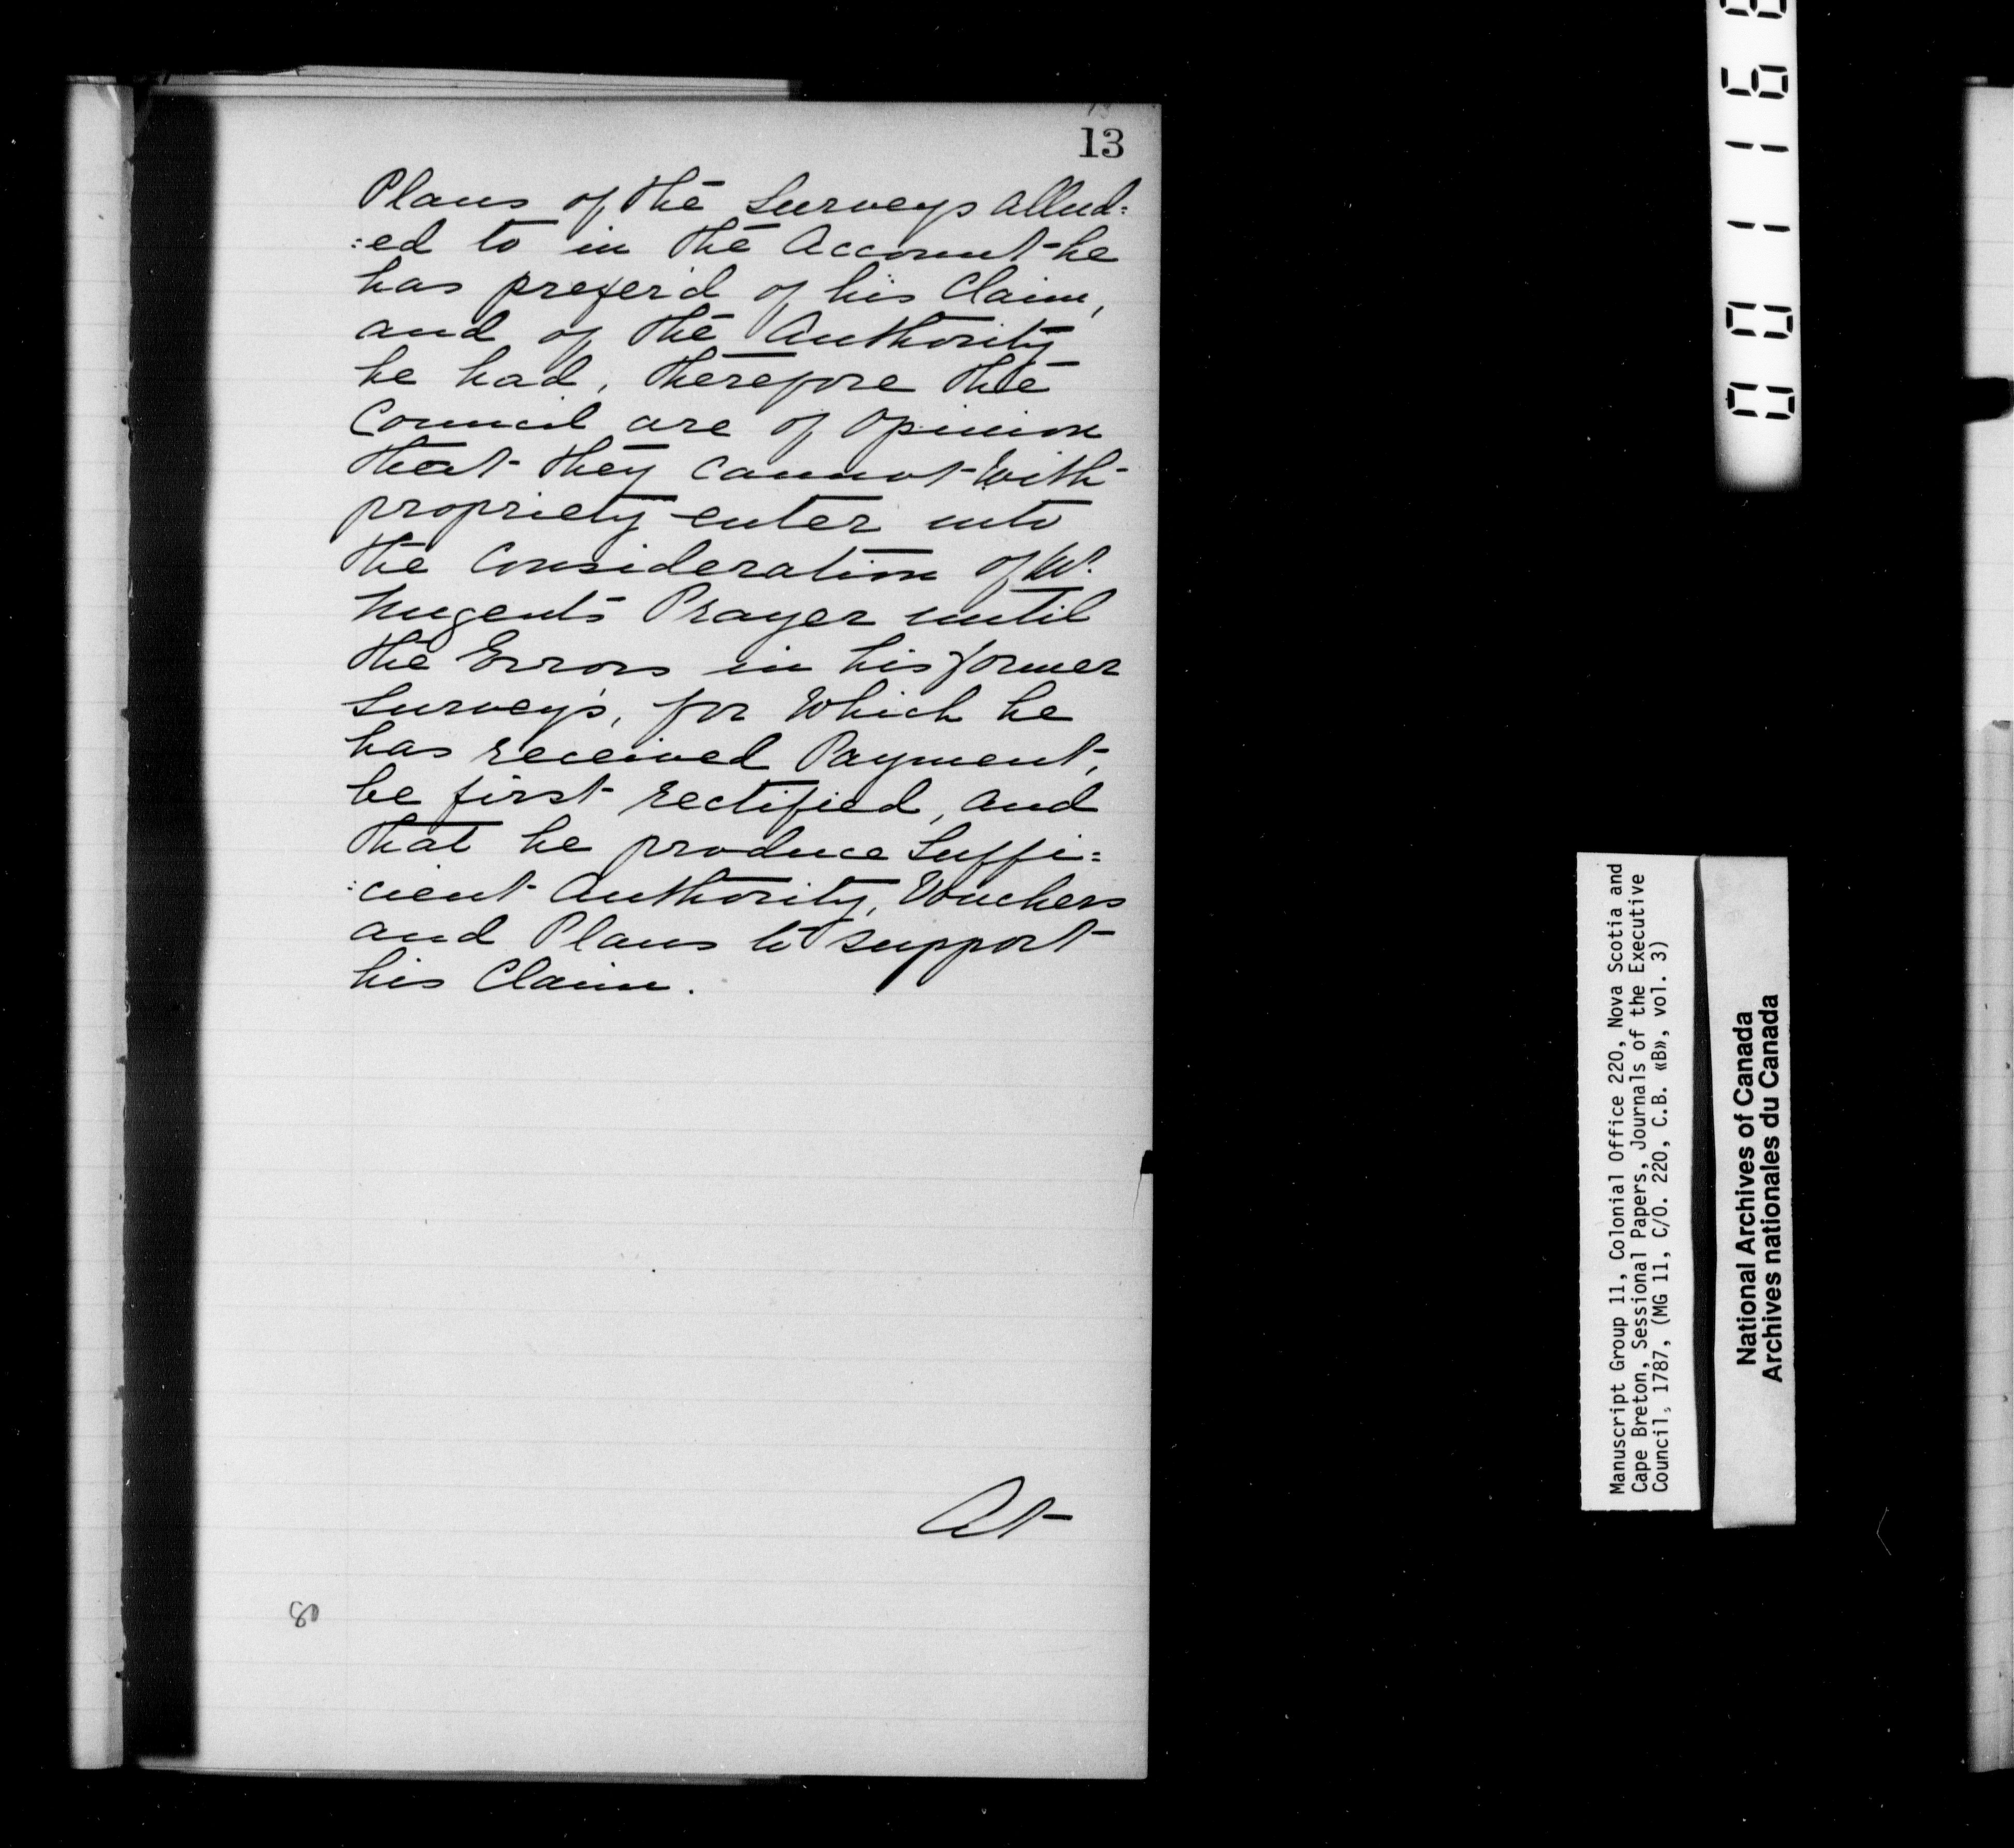 13
13
Plans of the Surveys allud=
=ed to in the Account he
has prefer'd of his Claim,
and of the Authority
he had, therefore the
Council are of Opinion
that they cannot with
propriety enter into
the Consideration of Mr.
Nugent's Prayer until
the Errors in his former
Surveys, for which he
has received Payment,
be first rectified, and
that he produce Suffi=
=cient Authority, Vouchers
and Plans to support
his Claim.
At
80
001168
Manuscript Group 11, Colonial Office 220, Nova Scotia and
Cape Breton, Sessional Papers, Journals of the Executive
Council, 1787, (MG 11, C/O. 220, C.B. «B», vol. 3)
National Archives of Canada
Archives nationales du Canada